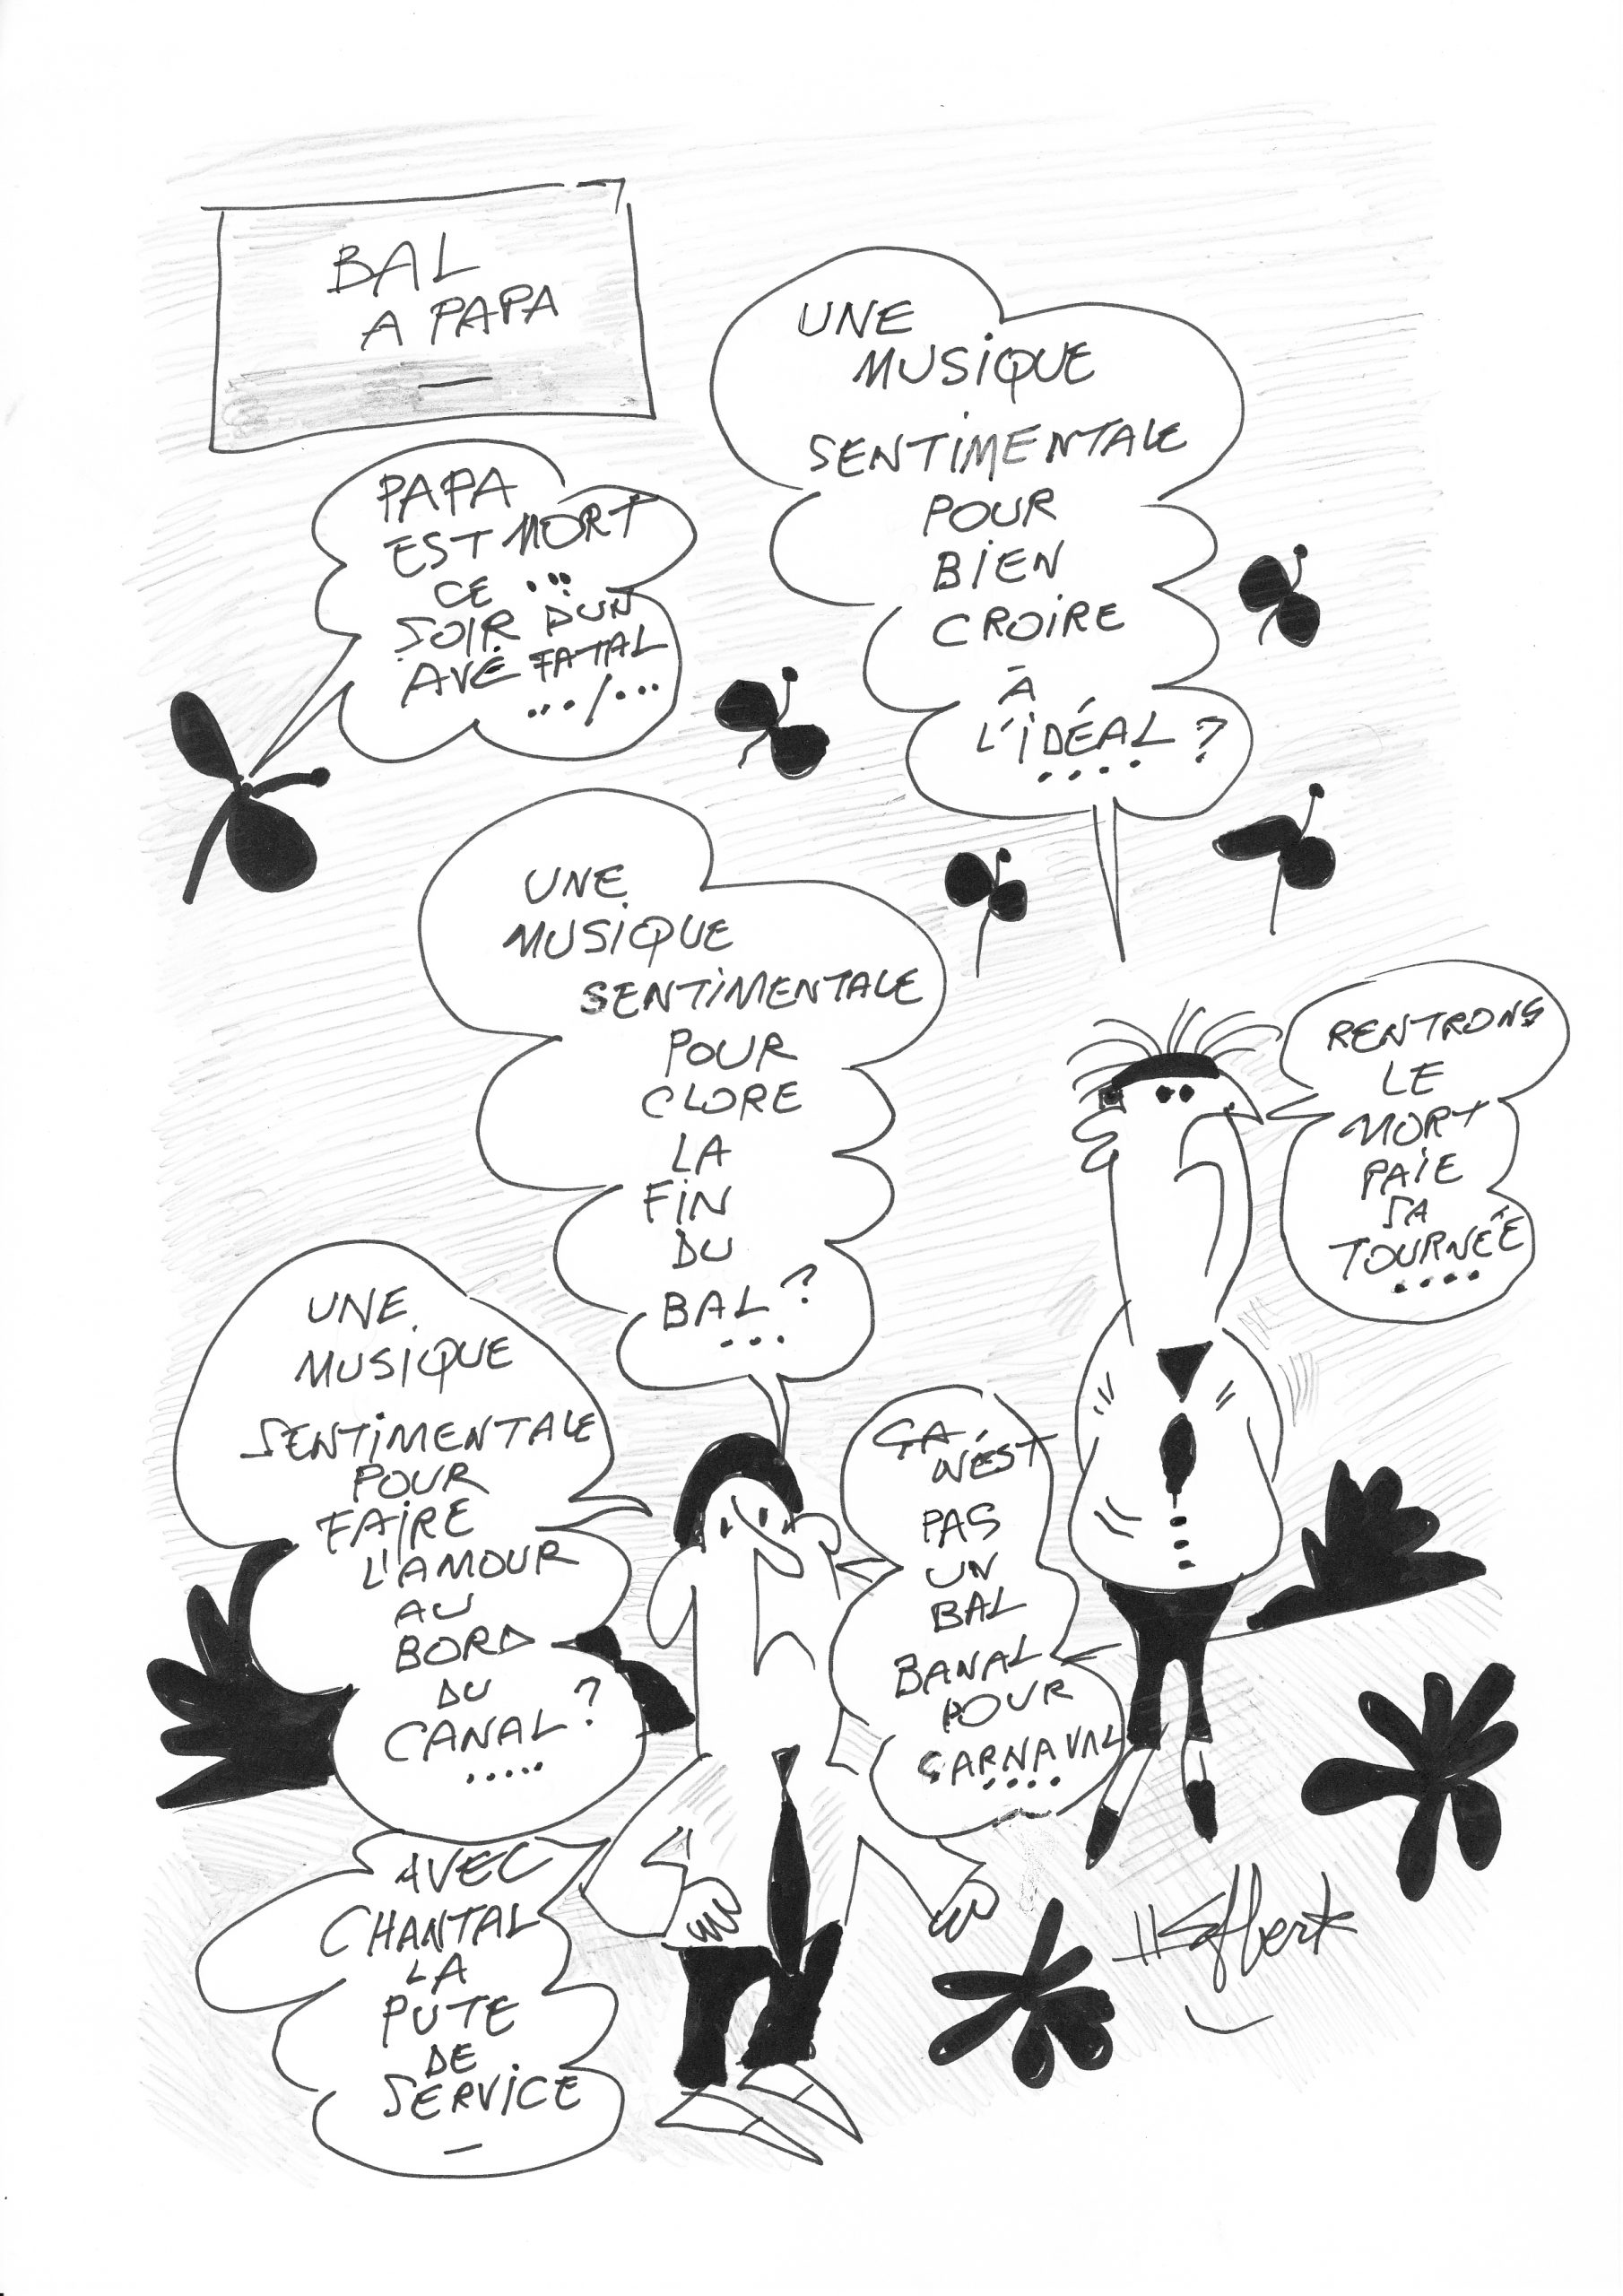 BAL
A PAPA
PAPA
EST MORT
CE ...
SOIR D'UN
AVÉ FATAL
.../...
UNE
MUSIQUE
SENTIMENTALE
POUR
BIEN
CROIRE
À
L'IDÉAL ?
....
UNE
MUSIQUE
SENTIMENTALE
POUR
CLORE
LA
FIN
DU
BAL ?
...
RENTRONS
LE
MORT
PAIE
SA
TOURNÉE
....
UNE
MUSIQUE
SENTIMENTALE
POUR
FAIRE
L'AMOUR
AU
BORD
DU
CANAL ?
.....
ÇA
N'EST
PAS
UN
BAL
BANAL
POUR
CARNAVAL
....
AVEC
CHANTAL
LA
PUTE
DE
SERVICE